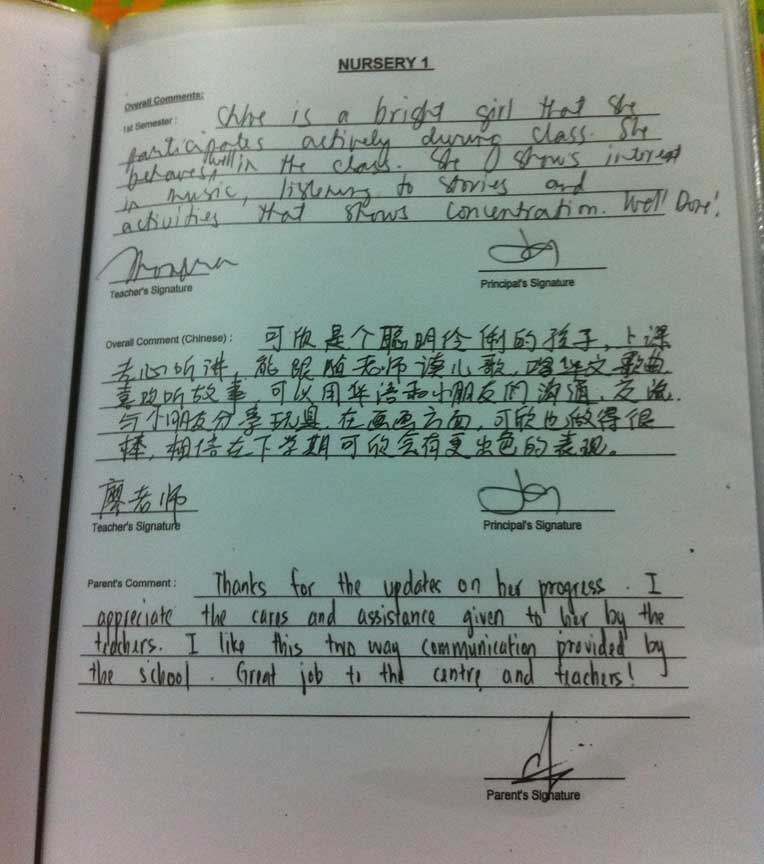 NURSERY 1
Overall Comments:
1st Semester : Chloe is a bright girl that she
participates actively during class. She
behaves well in the class. She shows interest
in music, listening to stories and
activities that shows concentration. Well Done!
Teacher's Signature
Principal's Signature
Overall Comment (Chinese) : 可欣是个聪明伶俐的孩子,上课
专心听讲,能跟随老师读儿歌,唱华文歌曲,
喜欢听故事,可以用华语和小朋友们沟通,交流,
与小朋友分享玩具,在画画方面,可欣也做得很
棒,相信在下学期可欣会有更出色的表现。
廖老师
Teacher's Signature
Principal's Signature
Parent's Comment : Thanks for the updates on her progress. I
appreciate the cares and assistance given to her by the
teachers. I like this two way communication provided by
the school. Great job to the centre and teachers!
Parent's Signature